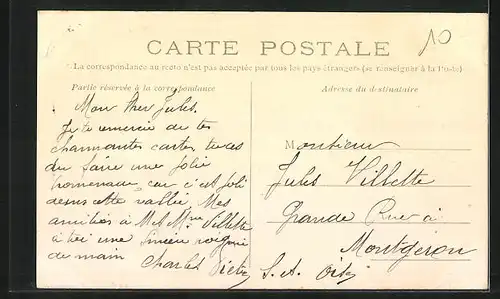 10
CARTE POSTALE
La correspondance au recto n'est pas acceptée par tous les pays étrangers (se renseigner à la Poste)
Partie réservée à la correspondance
Mon cher Jules.
Je te remercie de tes
charmantes cartes, tu as
du faire une jolie
promenade, car c'est joli
dans cette vallée. Mes
amitiés à M et Mme Villette
à toi une
de main Charles
Adresse du destinataire
Monsieur
Jules Villette
Grande Rue à
Montgeron
S. et Oise